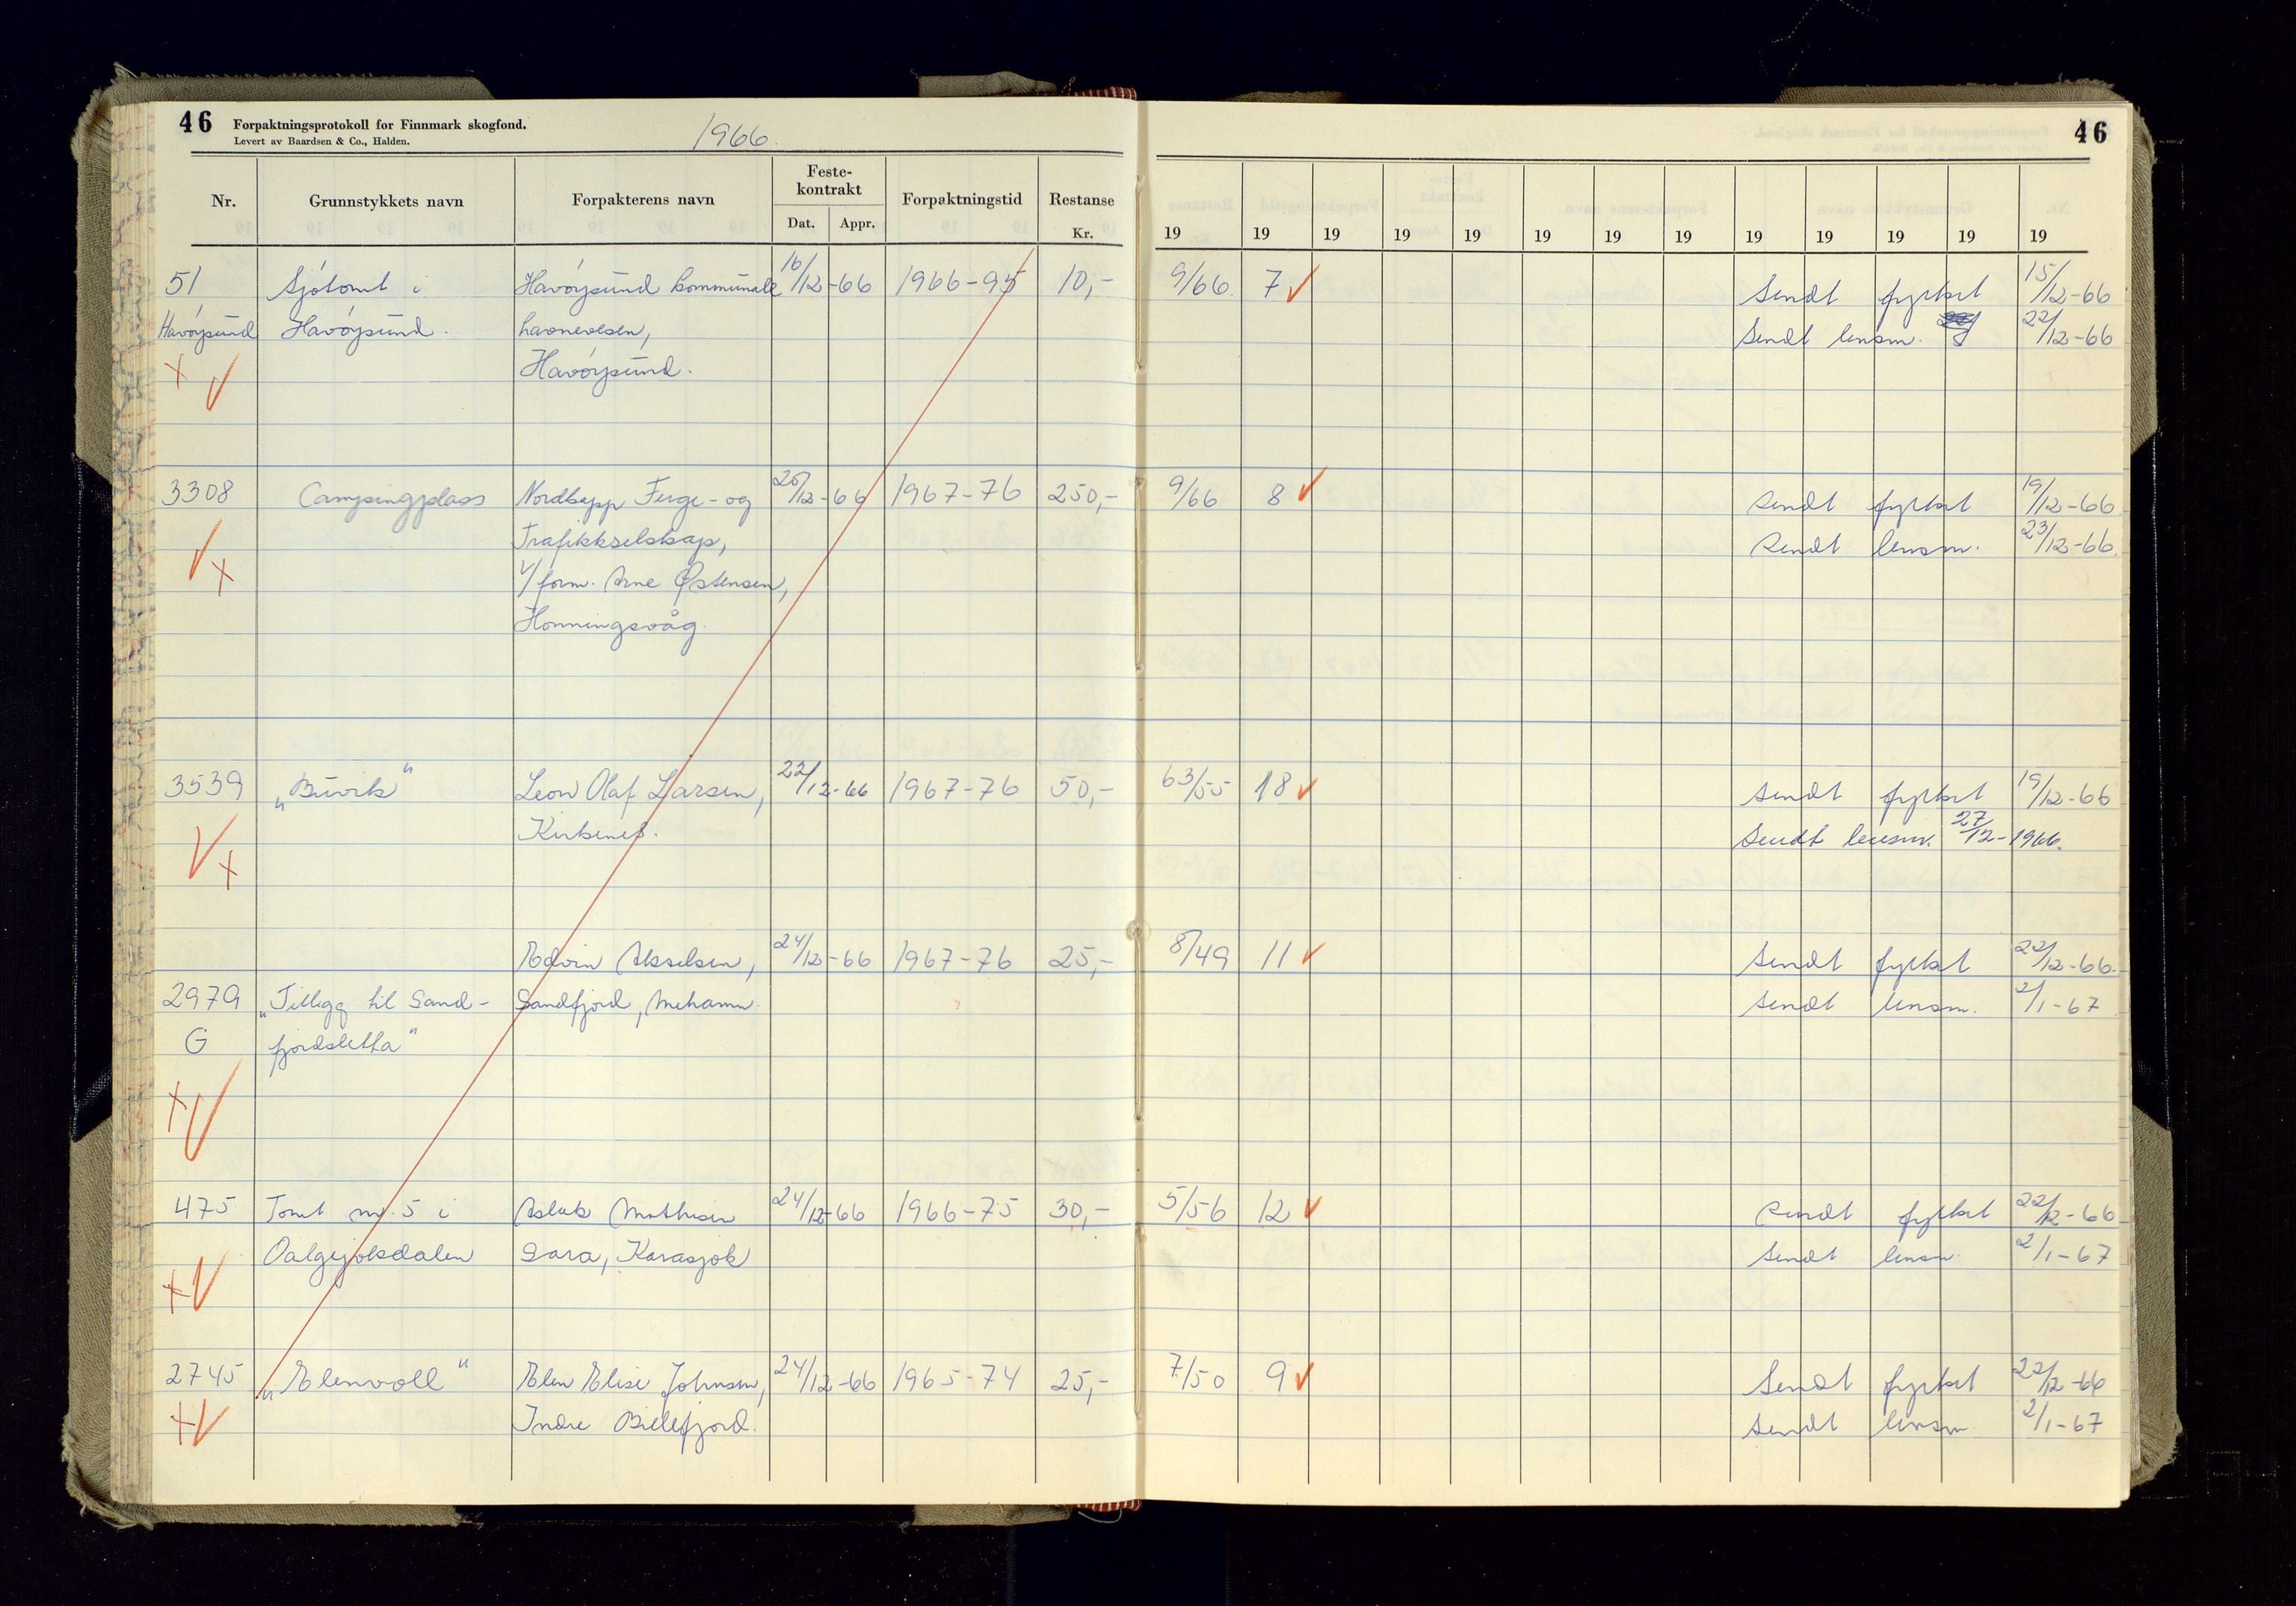 46 Forpaktningsprotokoll for Finnmark skogfond. 1966. 46
Levert av Baardsen & Co., Halden.
Nr. Grunnstykkets navn Forpakterens navn Feste-kontrakt Dat. Appr. Forpaktningstid Restanse Kr. 19 19 19 19 19 19 19 19 19 19 19 19 19
51 Sjøtomt i Havøysund kommunale 16/12-66 1966-95 10,- 9/66 7 ✓ Sendt fylket 15/12-66
Havøysund Havøysund. havnevesen, Sendt lensm. 22/12-66
x ✓ Havøysund.
3308 Campingplass Nordkapp Ferge- og 20/12-66 1967-76 250,- 9/66 8 ✓ Sendt fylket 19/12-66
Trafikkselskap, Sendt lensm. 23/12-66.
✓ x v/form. Arne Østensen,
Honningsvåg.
3539 „Buvik" Leon Olaf Larsen, 22/12-66 1967-76 50,- 63/55 18 ✓ Sendt fylket 19/12-66
Kirkenes. Sendt lensm. 27/12-1966.
✓ x
Edvin Akselsen, 24/12-66 1967-76 25,- 8/49 11 ✓ Sendt fylket 22/12-66.
2979 „Tillegg til Sand- Sandfjord, Mehamn. Sendt lensm. 2/1-67
G fjordsletta"
x ✓
475 Tomt nr. 5 i Aslak Mathisen 24/12-66 1966-75 30,- 5/56 12 ✓ Sendt fylket 22/12-66
Oalgejoksdalen Sara, Karasjok Sendt lensm. 2/1-67
x ✓
2745 „Elenvoll" Elen Elise Johnsen, 24/12-66 1965-74 25,- 7/50 9 ✓ Sendt fylket 22/12-66
x ✓ Indre Billefjord. Sendt lensm. 2/1-67